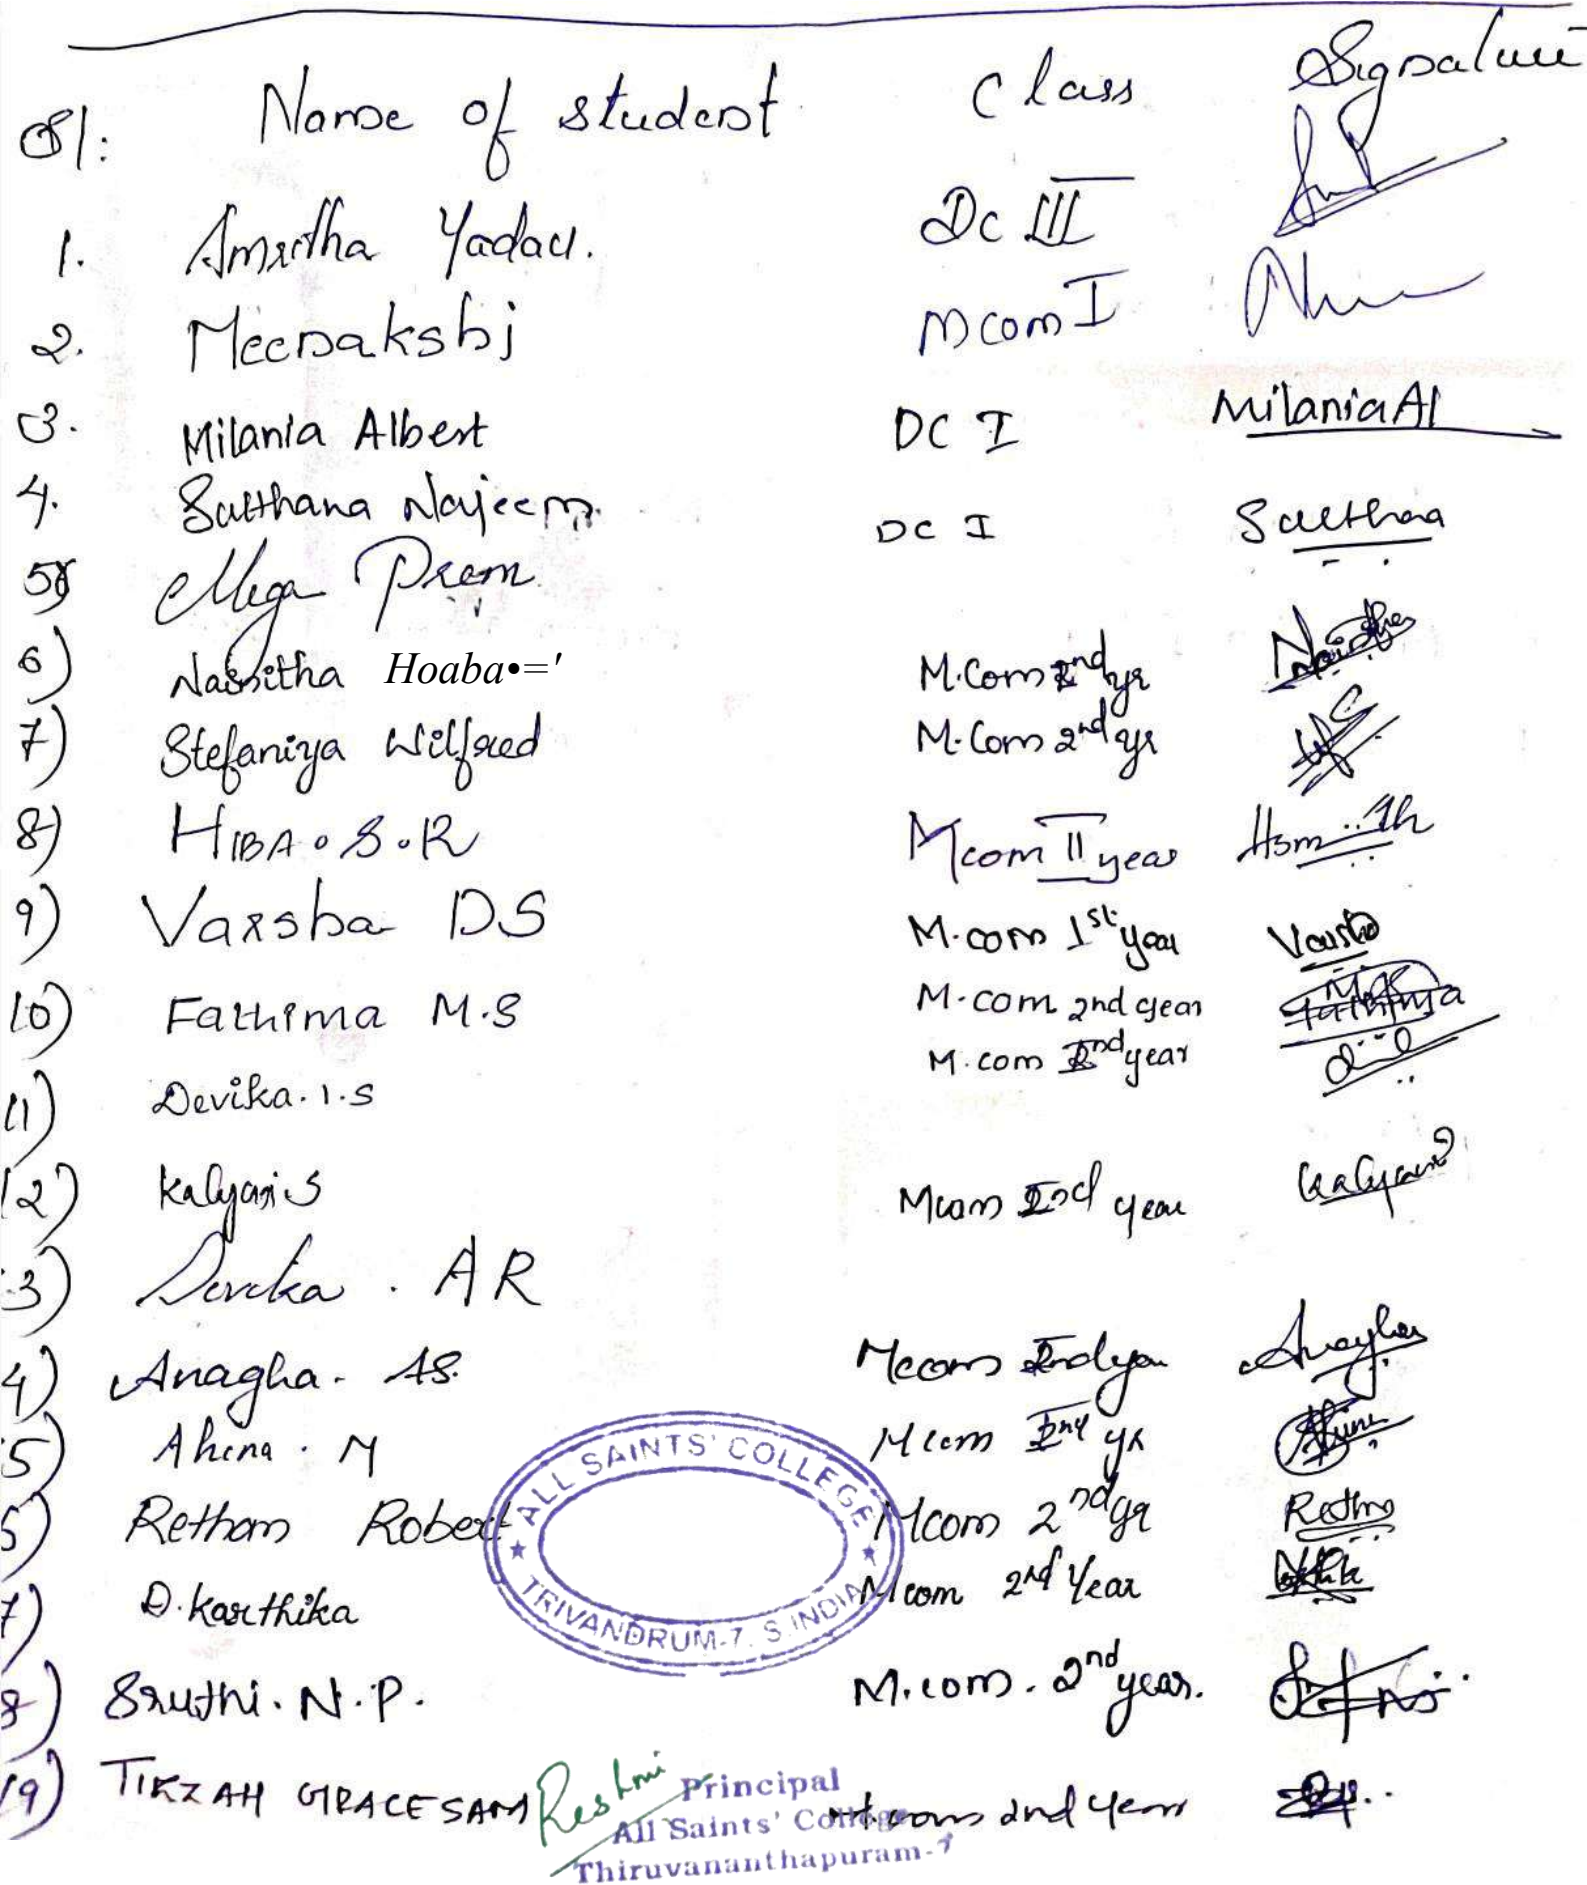 Sl: Name of student Class Signature
1. Amritha Yadav. DC III
2. Meenakshi Mcom I
3. Milania Albert DC I Milania Al
4. Sulthana Najeem. DC I Sulthana
5) Mega Prem
6) Nasitha Hoaba•=' M.Com 2nd yr
7) Stefaniya Wilfred M.Com 2nd yr
8) HIBA.S.R Mcom II year
9) Varsha DS M.com 1st year Varsha
10) Fathima M.S M.com 2nd year Fathima
11) Devika.I.S M.com 2nd year
12) Kalyani S Mcom 2nd year Kalyani
3) Devika . AR
4) Anagha. AS. Mcom 2nd year Anagha
5) Ahina . M Mcom 2nd yr
6) Retham Robert Mcom 2nd yr
7) D.Karthika Mcom 2nd Year
8) Sruthi.N.P. M.com. 2nd year.
19) TIRZAH GRACE SAM M.com 2nd year
ALL SAINTS' COLLEGE
TRIVANDRUM-7. S.INDIA
Reshmi
Principal
All Saints' College
Thiruvananthapuram-7